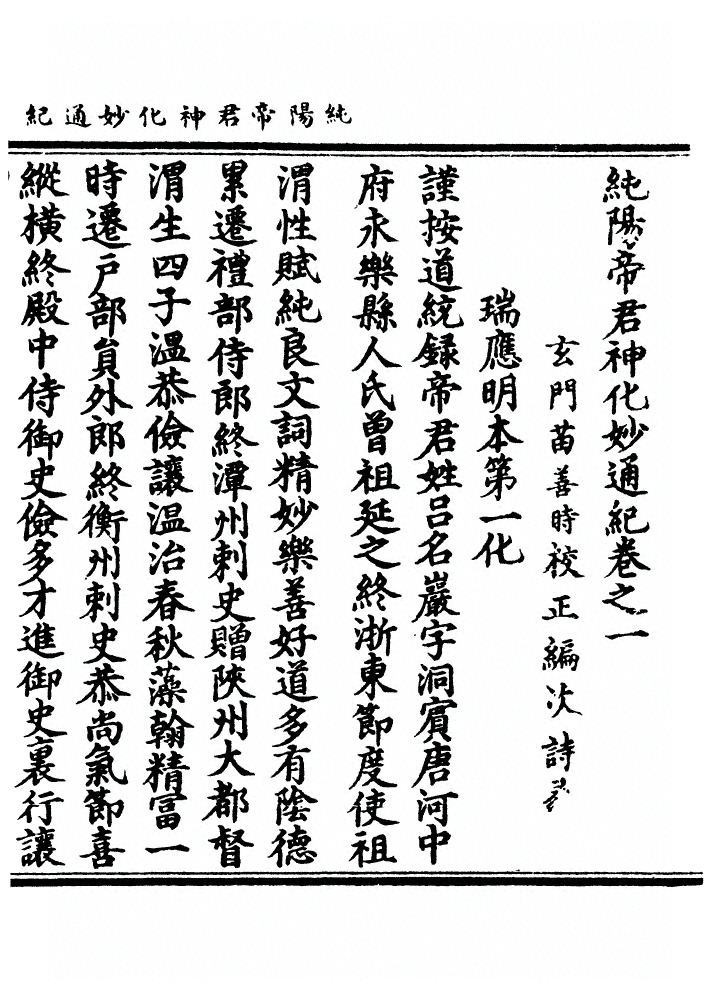 純陽帝君神化妙通紀
純陽帝君神化妙通紀卷之一
玄門苗善時校正編次詩
瑞應明本第一化
謹按道統錄帝君姓吕名巖字洞賔唐河中
府永樂縣人氏曾祖延之終浙東節度使祖
渭性賦純良文詞精妙樂善好道多有陰德
累遷禮部侍郎終潭州刺史贈陝州大都督
渭生四子溫恭儉讓溫治春秋藻翰精冨一
時遷戸部負外郎終衡州刺史恭尚氣節喜
縱横終殿中侍御史儉多才進御史裏行讓